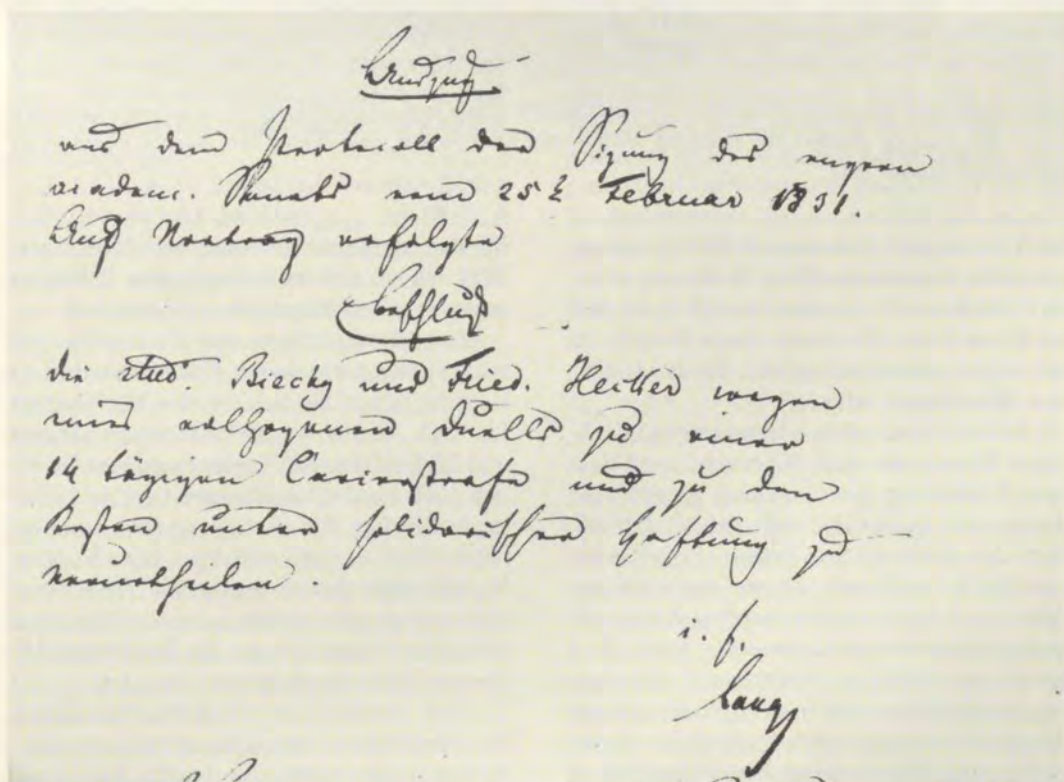 Auszug
aus dem Protocoll der Sitzung des engern
academ. Senats vom 25t Februar 1831.
Auf Vortrag erfolgte
Beschluß
die stud. Biecky und Fried. Hecker wegen
eines vollzogenen Duells zu einer
14 tägigen Carcerstrafe und zu den
Kosten unter solidarischer Haftung zu
verurtheilen.
i. f.
Lang